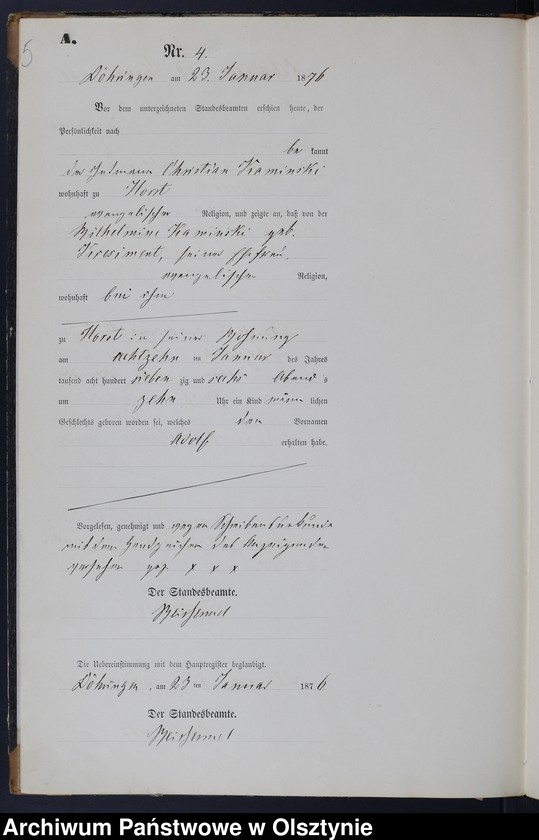 5
A.
Nr. 4.
Döhringen am 23. Januar 1876
Vor dem unterzeichneten Standesbeamten erschien heute, der
Persönlichkeit nach
be kannt
der Christian Kaminski
wohnhaft zu Horst
evangelischer Religion, und zeigte an, daß von der
Wilhelmine Kaminski geb.
seiner Ehefrau,
evangelischer Religion,
wohnhaft bei ihm
zu Horst in seiner Wohnung
am achtzehn ten Januar des Jahres
tausend acht hundert sieben zig und sechs Abend s
um zehn Uhr ein Kind männ lichen
Geschlechts geboren worden sei, welches den Vornamen
Adolf
erhalten habe.
Vorgelesen, genehmigt und wegen Schreibensunkunde
mit dem Handzeichen des Anzeigenden
versehen gez x x x
Der Standesbeamte.
Die Uebereinstimmung mit dem Hauptregister beglaubigt.
Döhringen, am 23 ten Januar 1876
Der Standesbeamte.
Archiwum Państwowe w Olsztynie